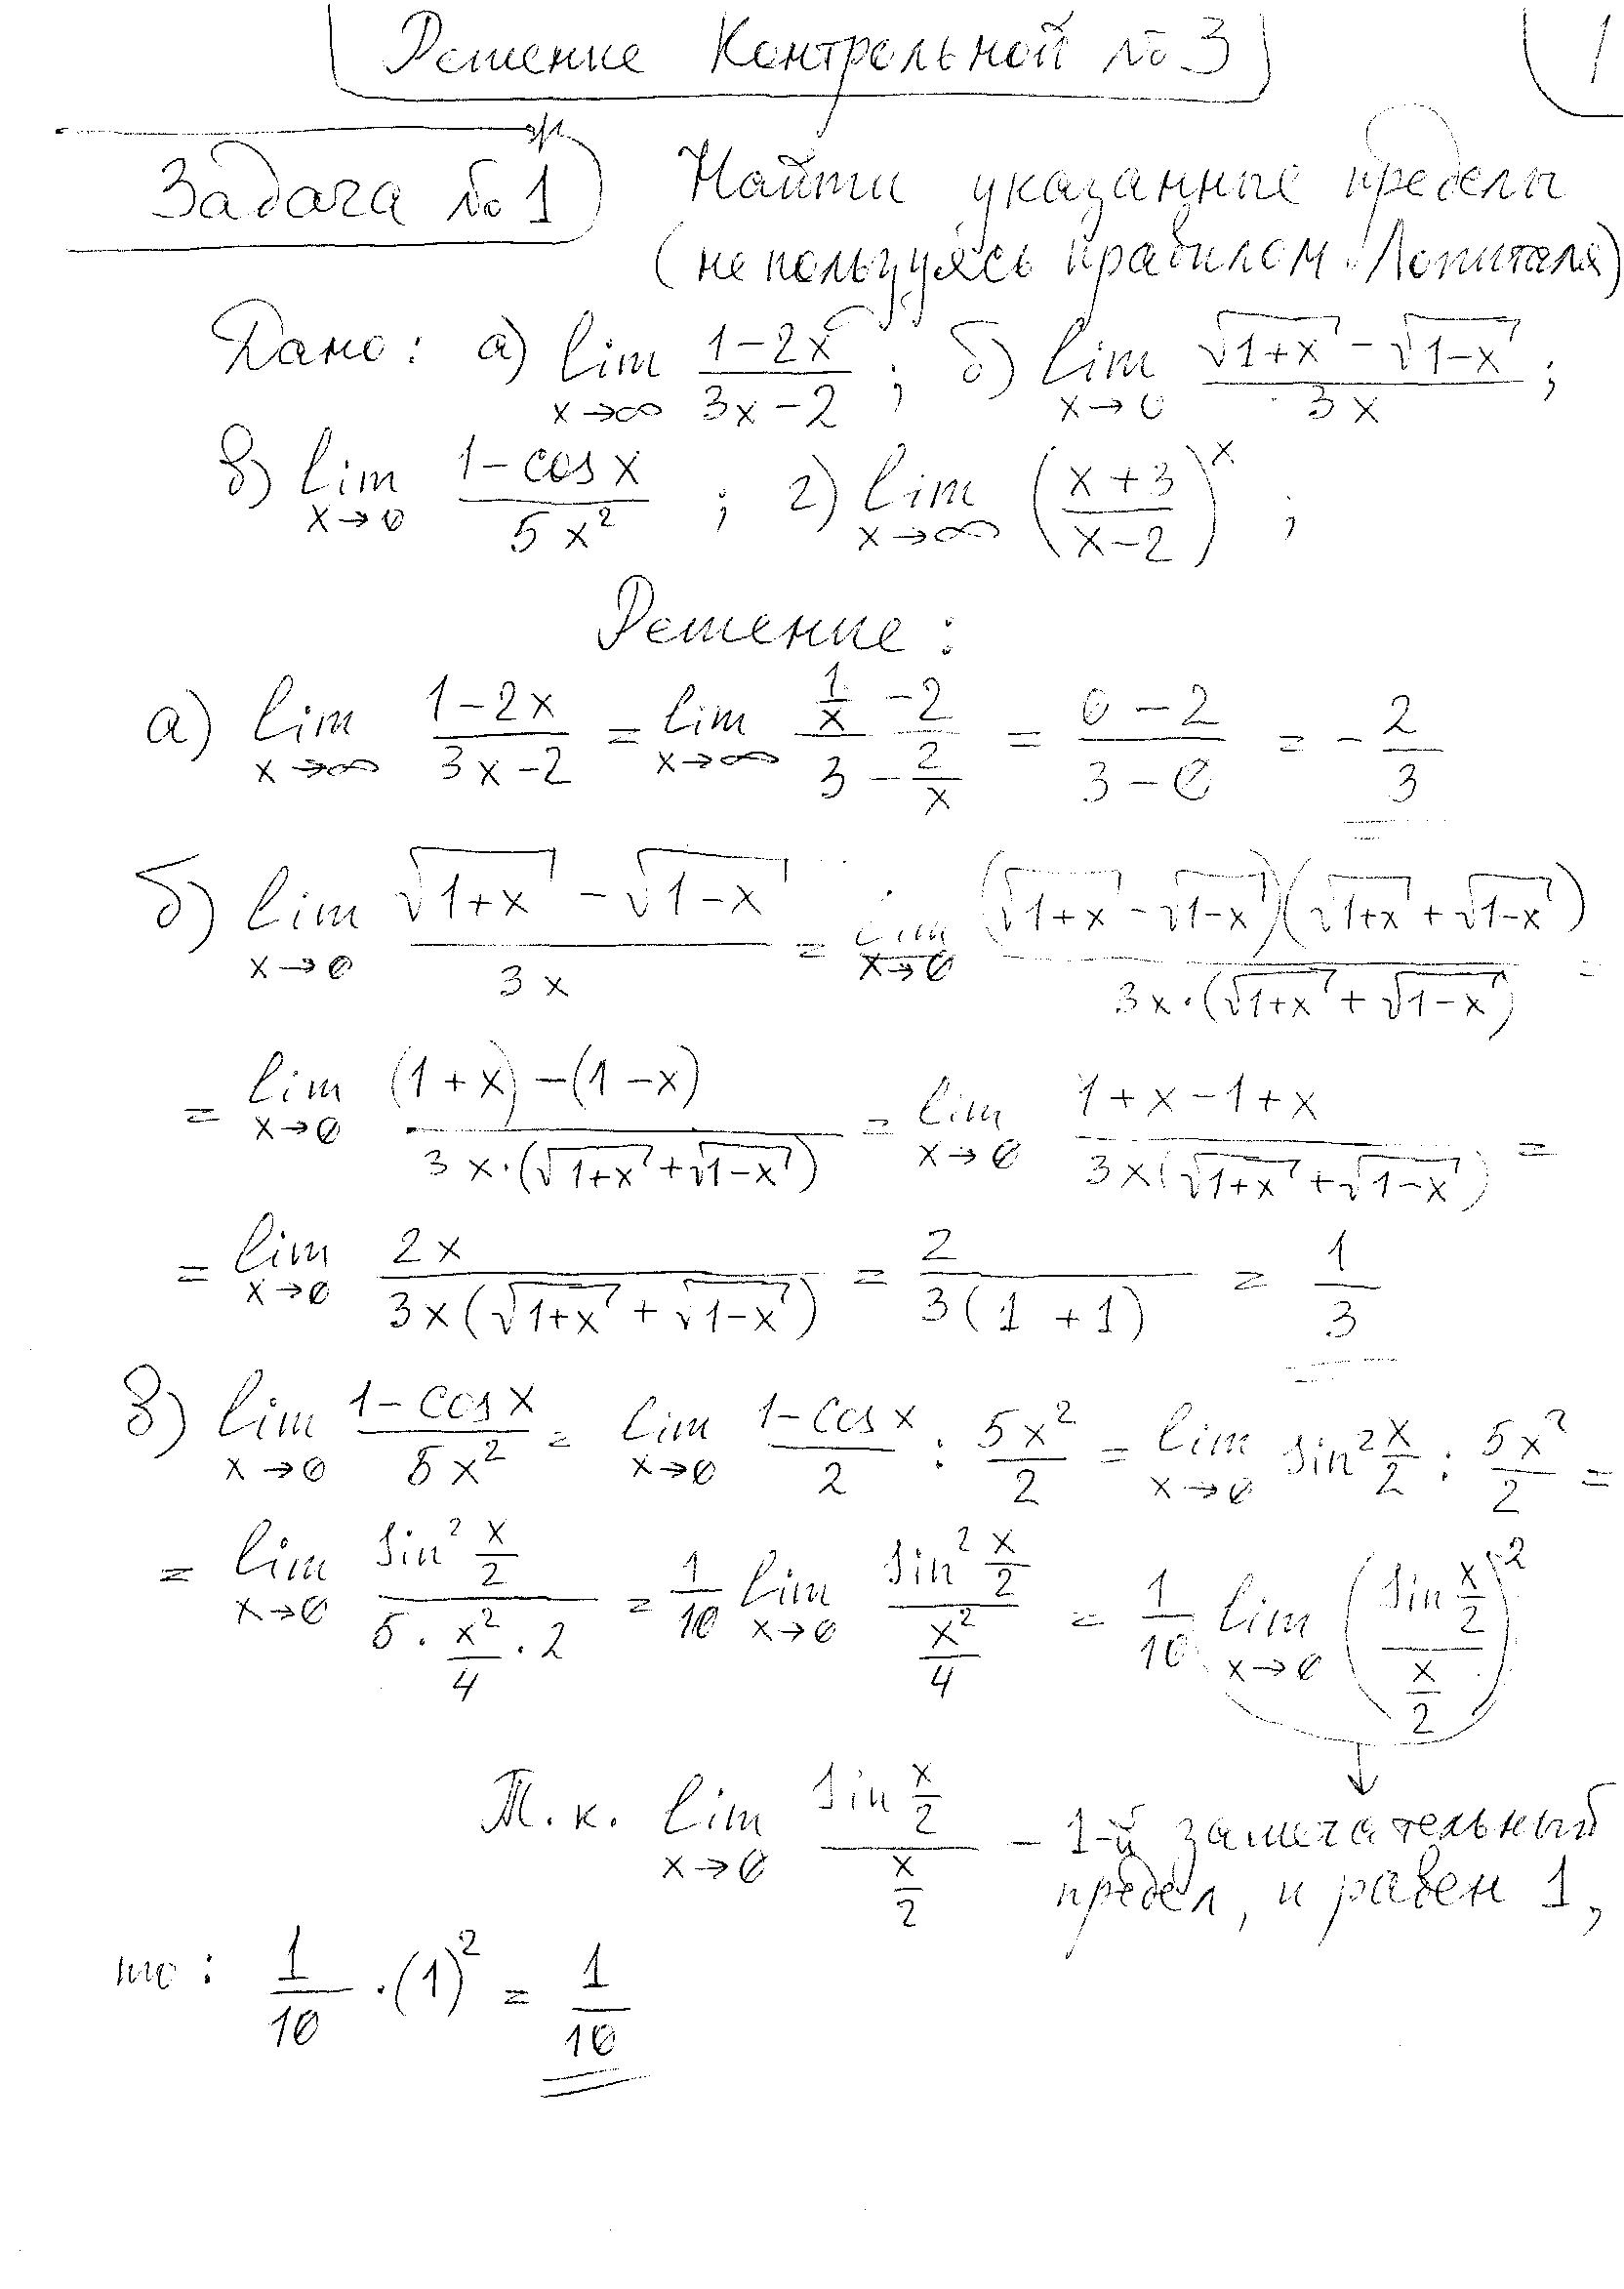 Решение Контрольной № 3
1
Задача № 1
Найти указанные пределы
(не пользуясь правилом Лопиталя)
Дано: а) lim x→∞ (1-2x)/(3x-2) ; б) lim x→0 (√(1+x) - √(1-x))/(3x) ;
в) lim x→0 (1-cos x)/(5x²) ; г) lim x→∞ ((x+3)/(x-2))^x ;
Решение:
а) lim x→∞ (1-2x)/(3x-2) = lim x→∞ (1/x - 2)/(3 - 2/x) = (0-2)/(3-0) = -2/3
б) lim x→0 (√(1+x) - √(1-x))/(3x) = lim x→0 ((√(1+x) - √(1-x))(√(1+x) + √(1-x)))/(3x·(√(1+x) + √(1-x))) =
= lim x→0 ((1+x)-(1-x))/(3x·(√(1+x) + √(1-x))) = lim x→0 (1+x-1+x)/(3x(√(1+x) + √(1-x))) =
= lim x→0 2x/(3x(√(1+x) + √(1-x))) = 2/(3(1+1)) = 1/3
в) lim x→0 (1-cos x)/(5x²) = lim x→0 (1-cos x)/2 : 5x²/2 = lim x→0 sin² x/2 : 5x²/2 =
= lim x→0 (sin² x/2)/(5·x²/4·2) = 1/10 lim x→0 (sin² x/2)/(x²/4) = 1/10 lim x→0 ((sin x/2)/(x/2))²
Т.к. lim x→0 (sin x/2)/(x/2) - 1-й замечательный
предел, и равен 1,
то: 1/10 ·(1)² = 1/10